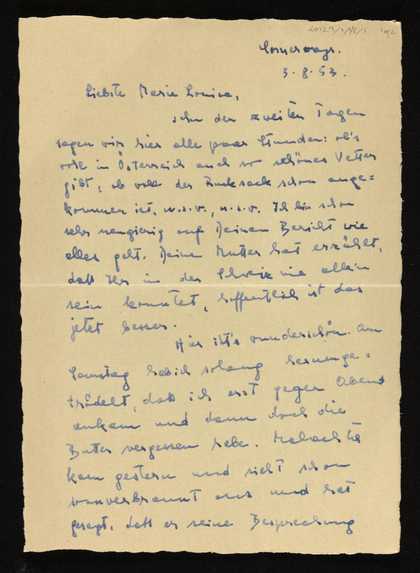 3.8.53.
Liebste Marie Louise,
den zweiten Tagen
sagen wir hier alle paar Stunden: ob's
wohl in Österreich auch so schönes Wetter
gibt, ob wohl der Rucksack schon ange-
kommen ist, u.s.w., u.s.w. Ich bin schon
sehr neugierig auf Deinen Bericht wie
alles geht. Deine Mutter hat erzählt,
daß Ihr in der Schweiz nie allein
sein konntet, hoffentlich ist das
jetzt besser.
Hier ist's wunderschön. Am
Samstag hab ich solang herumge-
trödelt, daß ich erst gegen Abend
ankam und dann doch die
Butter vergessen habe.
kam gestern und sieht schon
aus und hat
gesagt, daß er seine Besprechung